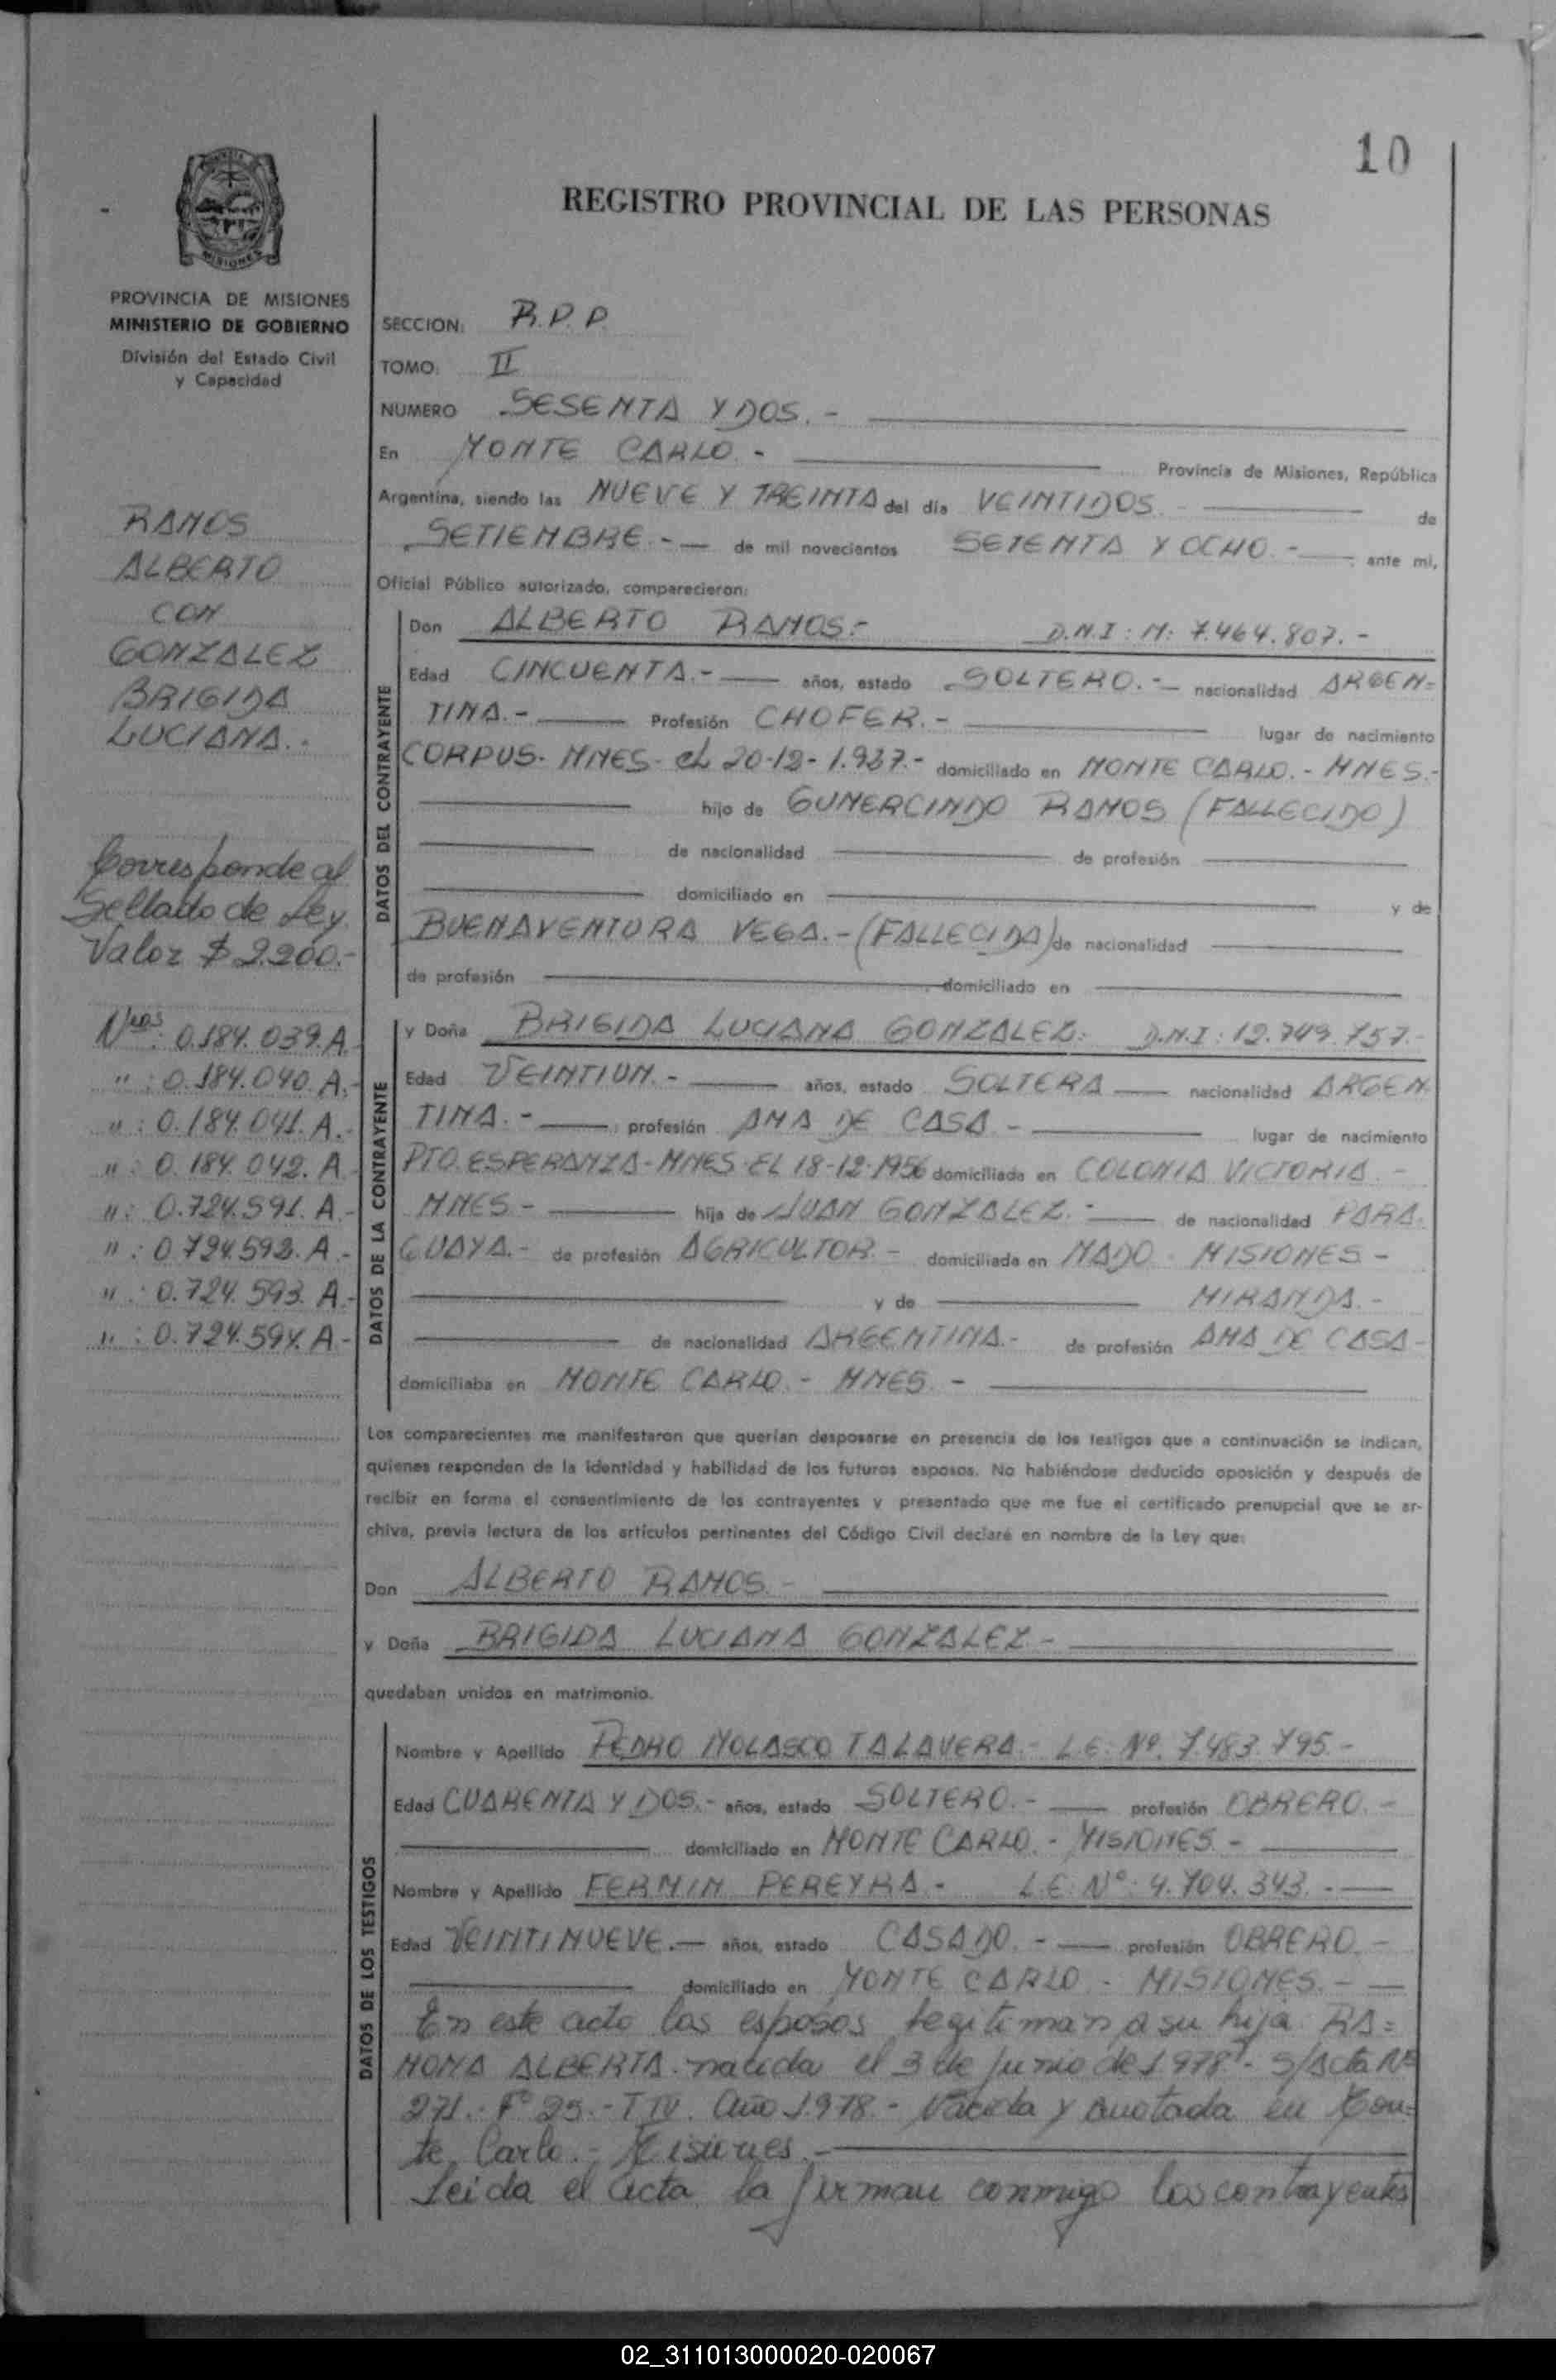 10
REGISTRO PROVINCIAL DE LAS PERSONAS
MISIONES
PROVINCIA DE MISIONES
MINISTERIO DE GOBIERNO
División del Estado Civil
y Capacidad
RAMOS
ALBERTO
CON
GONZALEZ
BRIGIDA
LUCIANA.-
Corresponde al
Sellado de Ley.
Valor $ 2.200.-
Nros: 0.184.039.A.-
" : 0.184.040.A.-
" : 0.184.041.A.-
" : 0.184.042.A.-
" : 0.724.591.A.-
" : 0.724.592.A.-
" : 0.724.593.A.-
" : 0.724.594.A.-
SECCION: R.P.P.
TOMO: II
NUMERO SESENTA Y DOS.-
En MONTE CARLO.- Provincia de Misiones, República
Argentina, siendo las NUEVE Y TREINTA del día VEINTIDOS de
SETIEMBRE.- de mil novecientos SETENTA Y OCHO.- ante mi,
Oficial Público autorizado, comparecieron:
DATOS DEL CONTRAYENTE
Don ALBERTO RAMOS.- D.N.I: M: 7.464.807.-
Edad CINCUENTA.- años, estado SOLTERO.- nacionalidad ARGEN=
TINA.- Profesión CHOFER.- lugar de nacimiento
CORPUS- MNES- el 20-12-1.927.- domiciliado en MONTE CARLO.- MNES.-
hijo de GUMERCINDO RAMOS (FALLECIDO)
de nacionalidad de profesión
domiciliado en y de
BUENAVENTURA VEGA.- (FALLECIDA) de nacionalidad
de profesión domiciliado en
DATOS DE LA CONTRAYENTE
y Doña BRIGIDA LUCIANA GONZALEZ: D.N.I: 12.749.757.-
Edad VEINTIUN.- años, estado SOLTERA nacionalidad ARGEN
TINA.- profesión AMA DE CASA.- lugar de nacimiento
PTO. ESPERANZA- MNES- EL 18-12-1956 domiciliada en COLONIA VICTORIA.-
MNES- hija de JUAN GONZALEZ.- de nacionalidad PARA-
GUAYA.- de profesión AGRICULTOR.- domiciliada en MADO- MISIONES-
y de MIRANDA.-
de nacionalidad ARGENTINA.- de profesión AMA DE CASA-
domiciliaba en MONTE CARLO.- MNES.-
Los comparecientes me manifestaron que querían desposarse en presencia de los testigos que a continuación se indican,
quienes responden de la identidad y habilidad de los futuros esposos. No habiéndose deducido oposición y después de
recibir en forma el consentimiento de los contrayentes y presentado que me fue el certificado prenupcial que se ar-
chiva, previa lectura de los artículos pertinentes del Código Civil declaré en nombre de la Ley que:
Don ALBERTO RAMOS.-
y Doña BRIGIDA LUCIANA GONZALEZ-
quedaban unidos en matrimonio.
DATOS DE LOS TESTIGOS
Nombre y Apellido PEDRO NOLASCO TALAVERA.- L.E. Nº. 7.483.795.-
Edad CUARENTA Y DOS.- años, estado SOLTERO.- profesión OBRERO.-
domiciliado en MONTE CARLO.- MISIONES.-
Nombre y Apellido FERMIN PEREYRA.- L.E. Nº: 4.704.343.-
Edad VEINTINUEVE.- años, estado CASADO.- profesión OBRERO.-
domiciliado en MONTE CARLO.- MISIONES.-
En este acto los esposos legitiman a su hija: RA=
MONA ALBERTA. nacida el 3 de junio de 1.978.- S/Acta Nº
271.- Fº 25.- T IV. Año 1.978.- Nacida y Anotada en Mon=
te Carlo.- Misiones.-
Leida el acta la firman conmigo los contrayentes
02_311013000020-020067